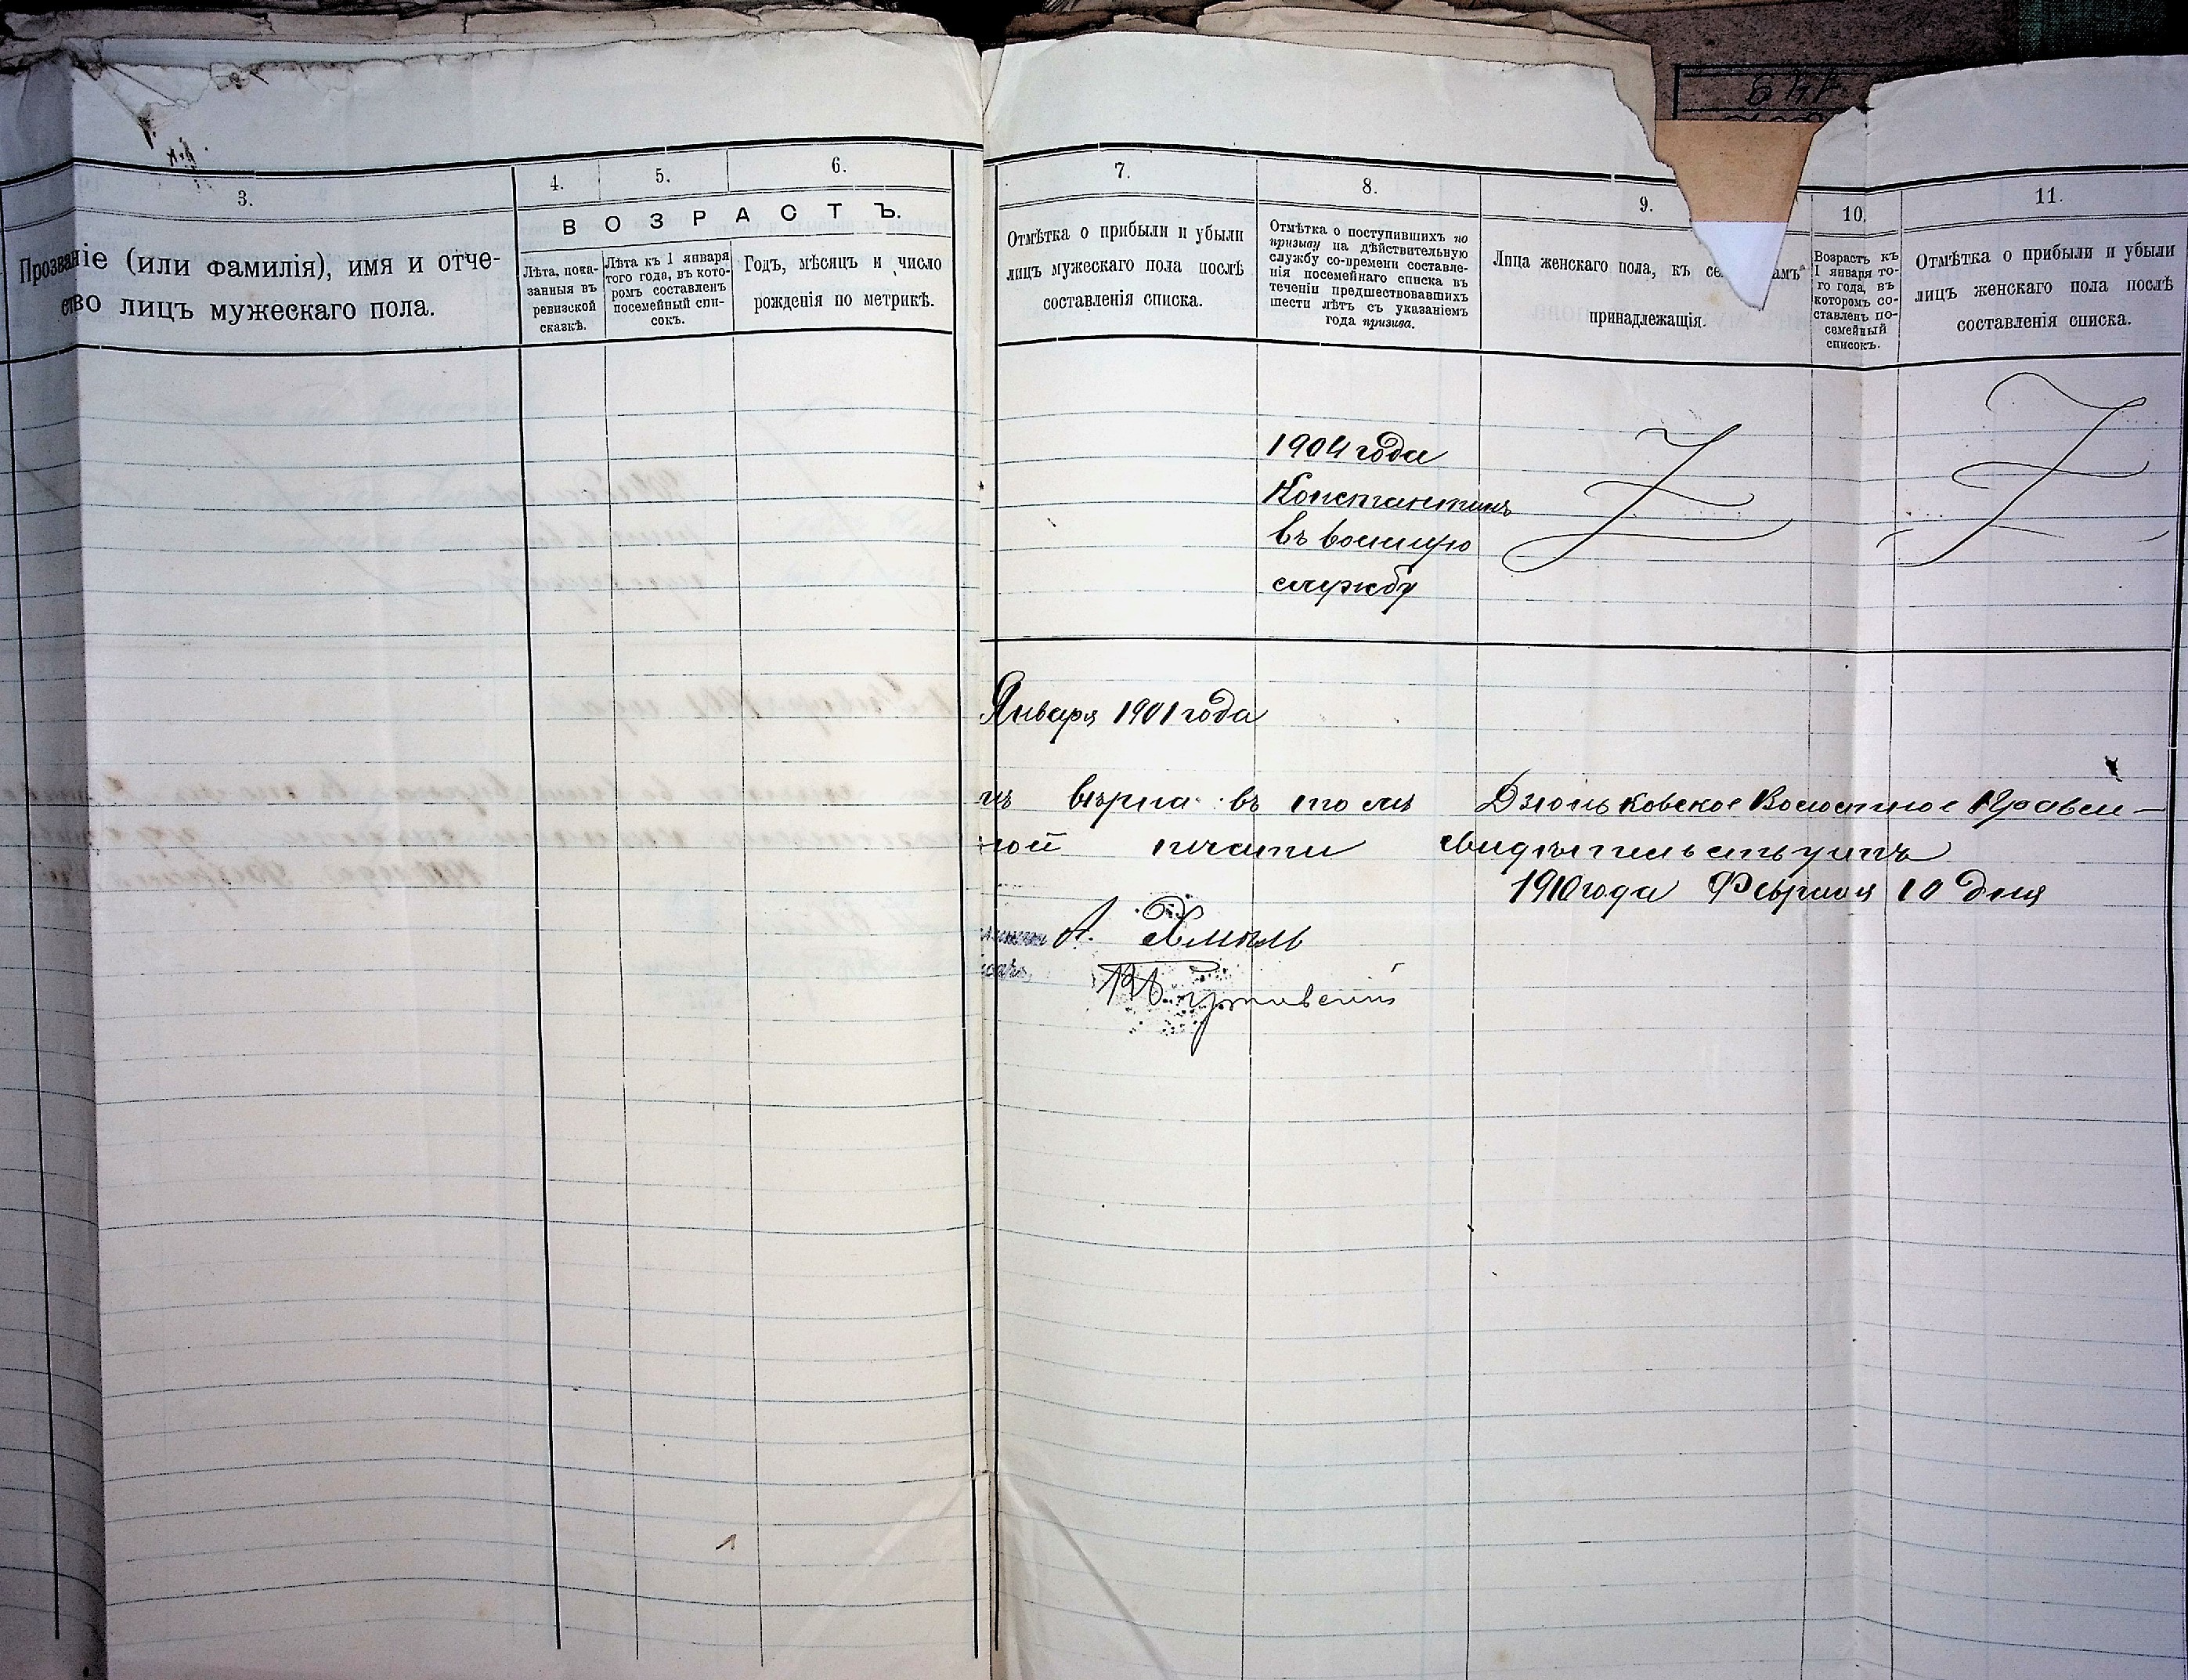 3.
Прозваніе (или фамилія), имя и отче-
ство лицъ мужескаго пола.
4.
5.
6.
ВОЗРАСТЪ.
Лѣта, пока-
занныя въ
ревизской
сказкѣ.
Лѣта къ 1 января
того года, въ кото-
ромъ составленъ
посемейный спи-
сокъ.
Годъ, мѣсяцъ и число
рожденія по метрикѣ.
7.
Отмѣтка о прибыли и убыли
лицъ мужескаго пола послѣ
составленія списка.
8.
Отмѣтка о поступившихъ по
призыву на дѣйствительную
службу со-времени составле-
нія посемейнаго списка въ
теченіи предшествовавшихъ
шести лѣтъ съ указаніемъ
года призыва.
9.
Лица женскаго пола, къ
принадлежащія.
10.
Возрастъ къ
1 января то-
го года, въ
которомъ со-
ставленъ по-
семейный
списокъ.
11.
Отмѣтка о прибыли и убыли
лицъ женскаго пола послѣ
составленія списка.
1904 года
Константинъ
въ военную
службу
Января 1901 года
вѣрна въ томъ Дзюньковское Волостное Правле-
ной печати свидѣтельствуетъ
1910 года Февраля 10 дня
А.